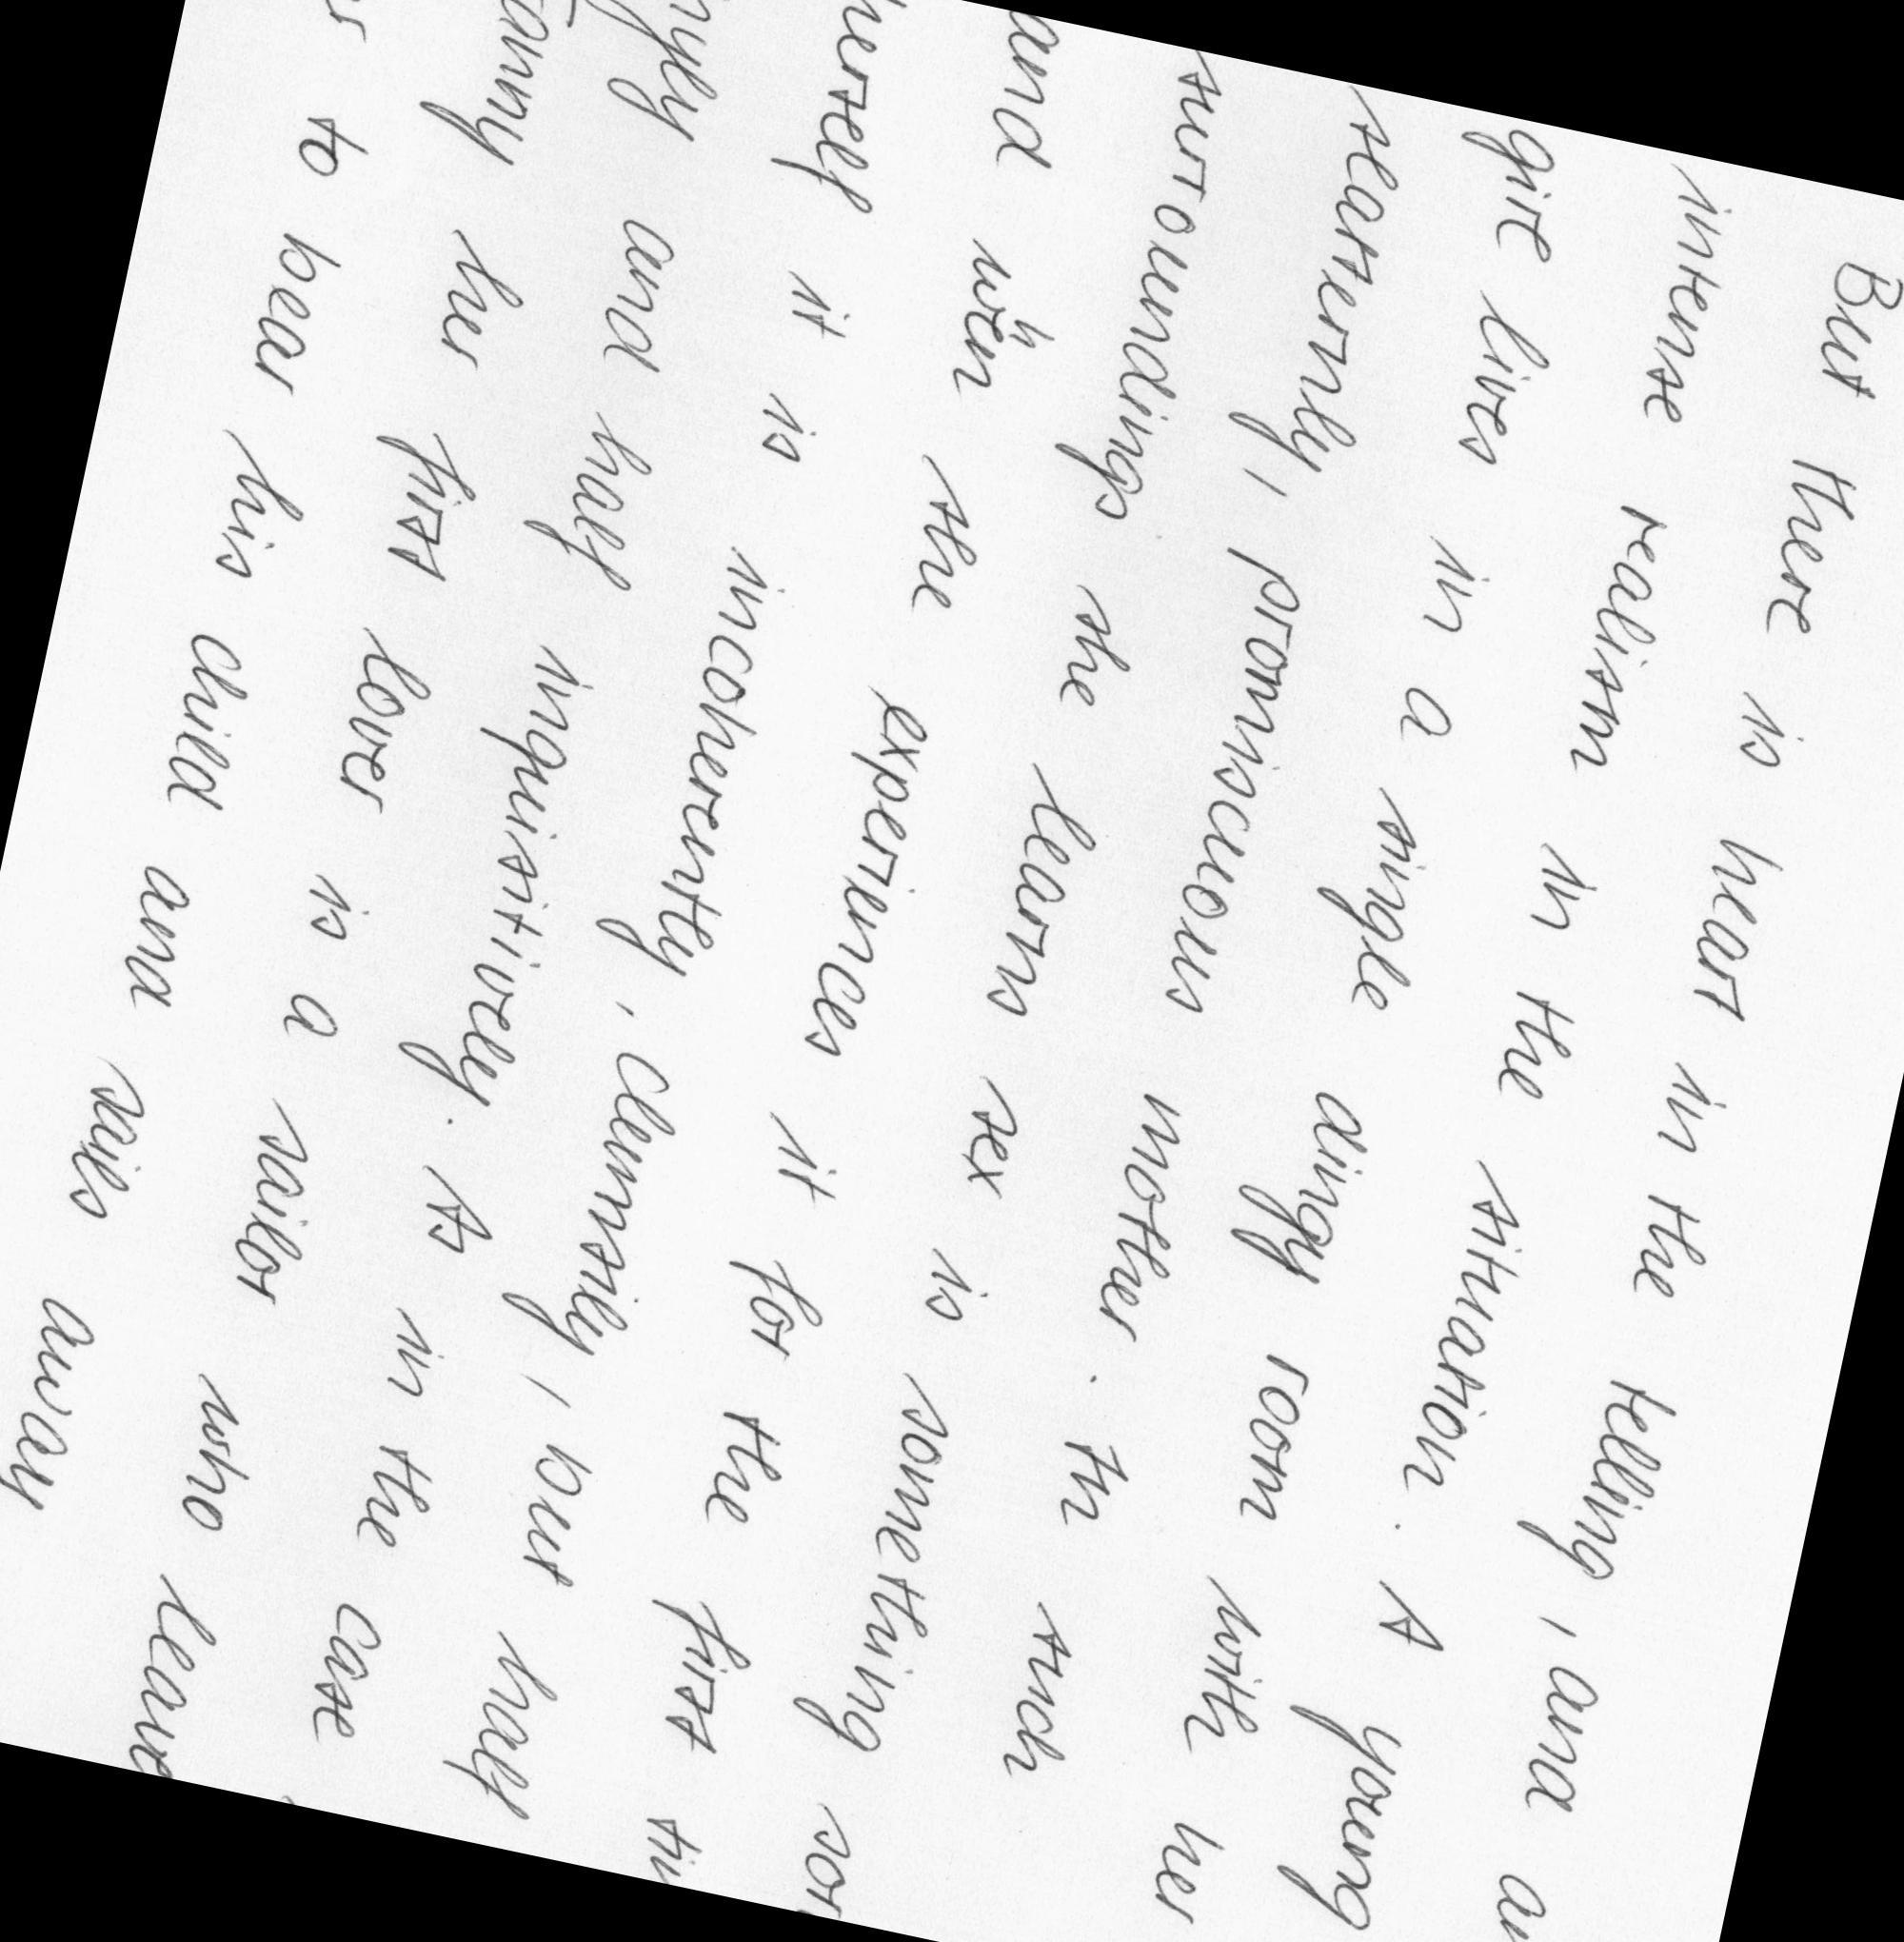 But there is heart in the telling, and
intense realism in the situation. A young
girl lives in a single dingy room with her
slatternly, promiscuous mother. In such
surroundings she learns sex is something
and when she experiences it for the first
herself it is incoherently, clumsily, but half
and half inquisitively. As in the case
many her first lover is a sailor who leaves
to bear his child and sails away